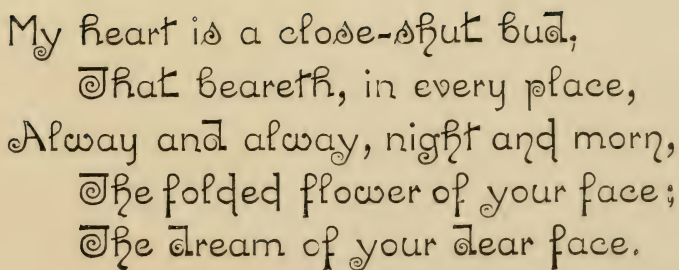 My heart is a close-shut bud,
That beareth, in every place,
Alway and alway, night and morn,
The folded flower of your face;
The dream of your dear face.